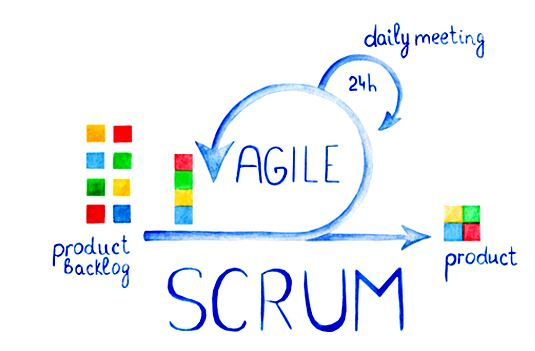 daily meeting
24h
AGILE
product
Backlog
product
SCRUM